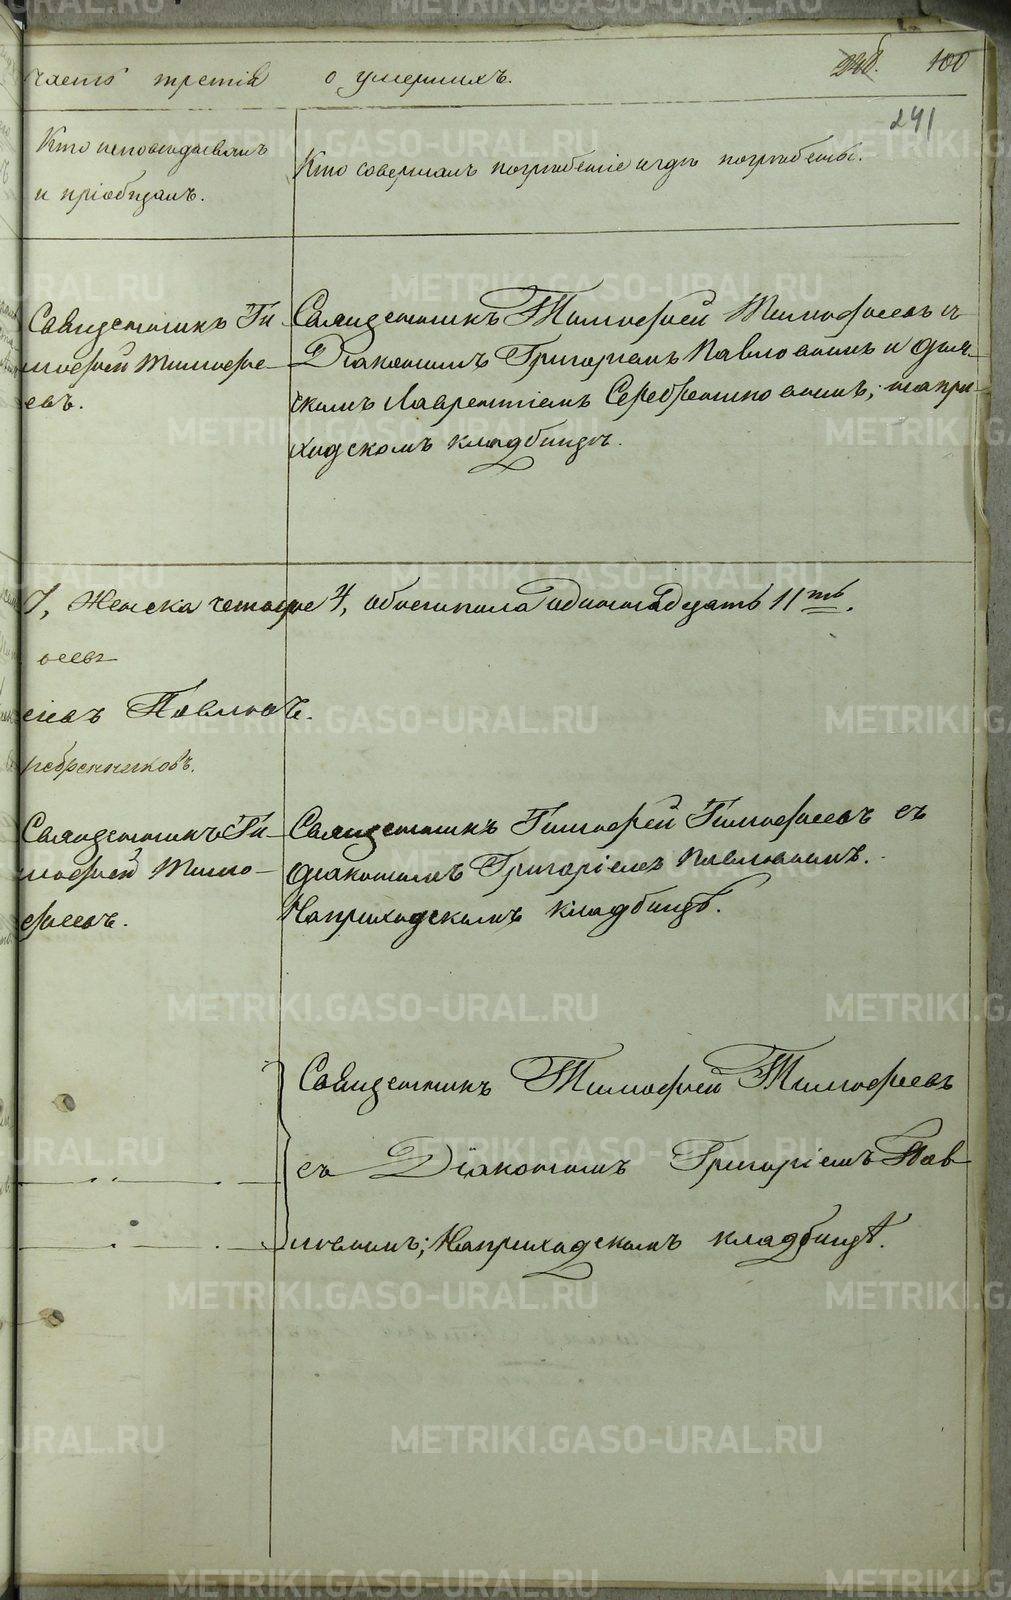 часть третія о умершихъ. 100
241
Кто исповѣдывалъ
и пріобщалъ.
Кто совершалъ погребеніе и гдѣ погребены.
Священникъ Ти-
мофей Тимофе-
евъ.
Священникъ Тимофей Тимофеевъ съ
Діакономъ Григоріемъ Павловымъ и дьяч-
комъ Лаврентіемъ Серебренниковымъ; на при-
ходскомъ кладбищѣ.
7, Женска четыре 4, обоего пола одиннадцать 11ть.
ѣевъ
ріевъ Павловъ.
ребренниковъ.
Священникъ Ти-
мофей Тимо-
феевъ.
Священникъ Тимофей Тимофеевъ съ
діакономъ Григоріемъ Павловымъ.
На приходскомъ кладбищѣ.
Священникъ Тимофей Тимофеевъ
съ Діакономъ Григоріемъ Пав-
ловымъ; На приходскомъ кладбищѣ.
METRIKI.GASO-URAL.RU